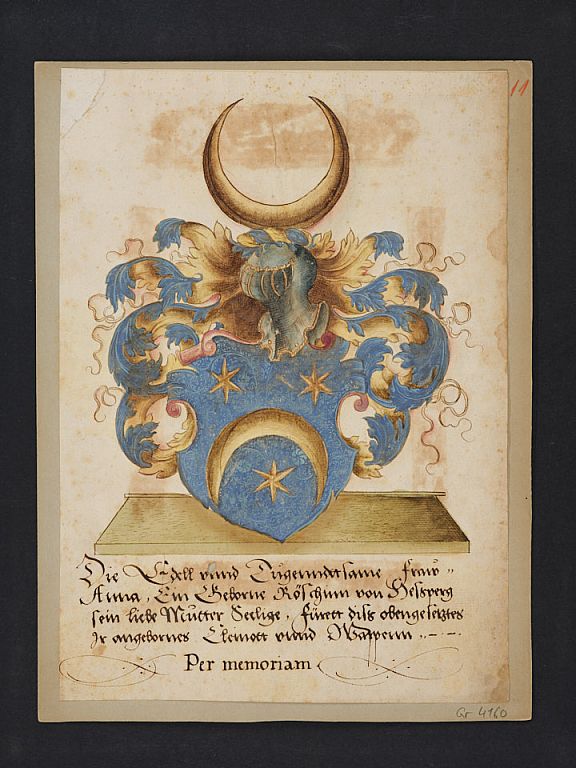 11
Die Edell vnnd Tugenndtsame fraw„
Anna, Ein Geborne Röschin von Hessperg
sein liebe Mutter Seelige, fürett diss obengesetztes
Ir angebornes Clemott vnnd Wappenn„
Per memoriam
Gr 4160